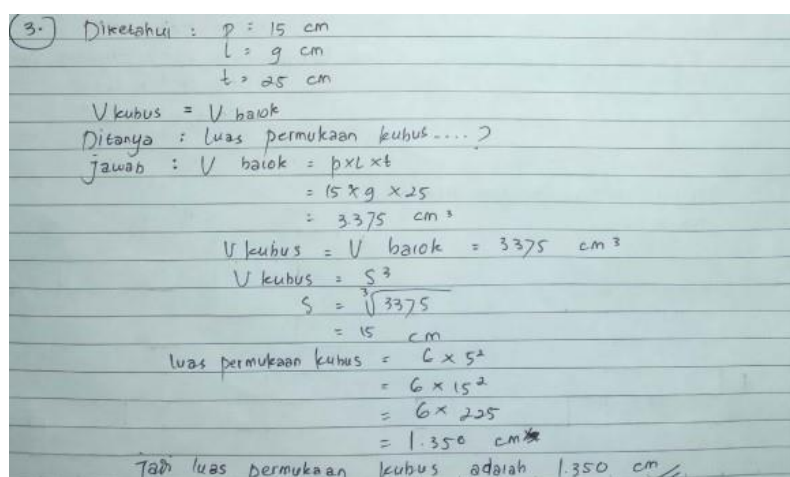 3. Diketahui : p : 15 cm
l : 9 cm
t = 25 cm
V kubus = V balok
Ditanya : luas permukaan kubus....?
Jawab : V balok = p x L x t
= 15 x 9 x 25
= 3.375 cm³
V kubus = V balok = 3375 cm³
V kubus = S³
S = ³√3375
= 15 cm
luas permukaan kubus = 6 x s²
= 6 x 15²
= 6 x 225
= 1.350 cm
Jadi luas permukaan kubus adalah 1.350 cm